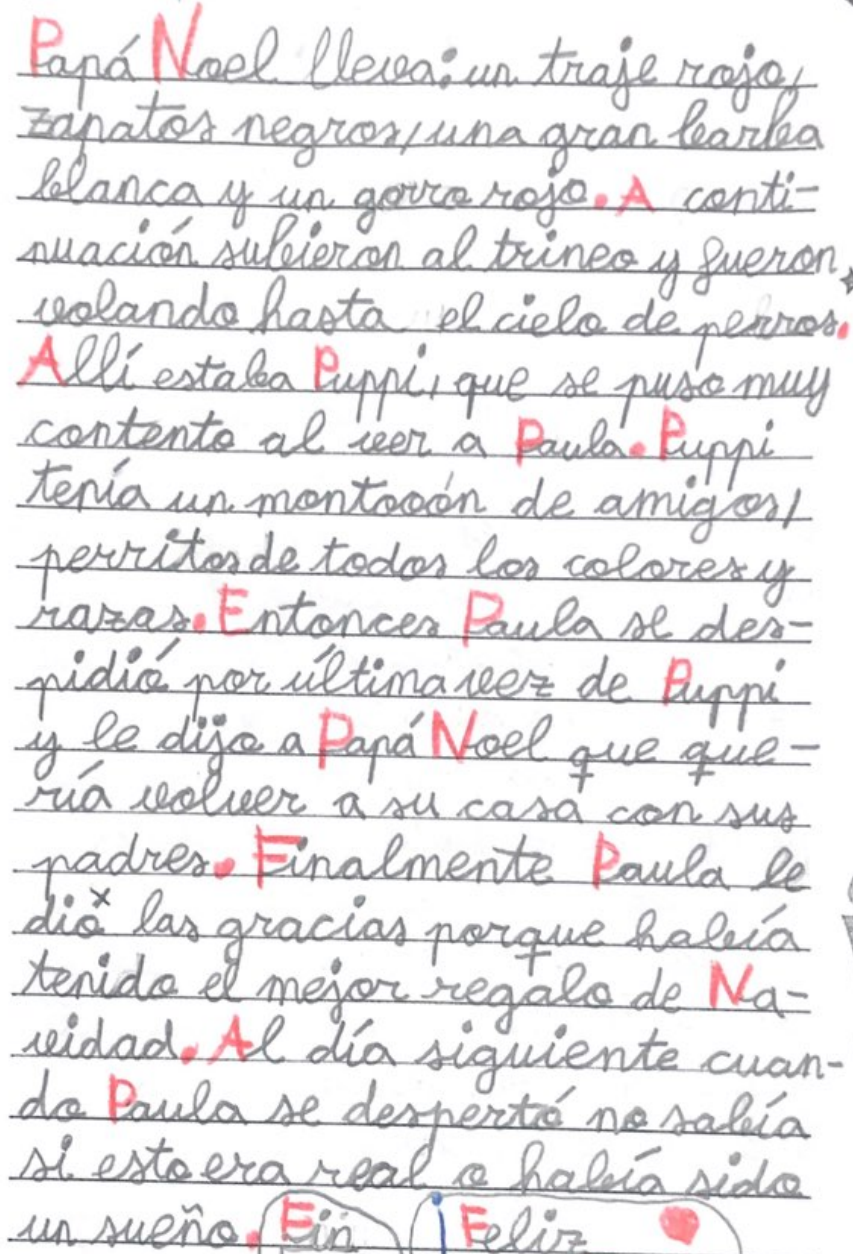 Papá Noel lleva: un traje rojo,
zapatos negros, una gran barba
blanca y un gorro rojo. A conti-
nuación subieron al trineo y fueron
volando hasta el cielo de perros.
Allí estaba Puppi, que se puso muy
contento al ver a Paula. Puppi
tenía un montooón de amigos,
perritos de todos los colores y
razas. Entonces Paula se des-
pidió por última vez de Puppi
y le dijo a Papá Noel que que-
ría volver a su casa con sus
padres. Finalmente Paula le
dió las gracias porque había
tenido el mejor regalo de Na-
vidad. Al día siguiente cuan-
do Paula se despertó no sabía
si esto era real o había sido
un sueño. Fin ¡Feliz